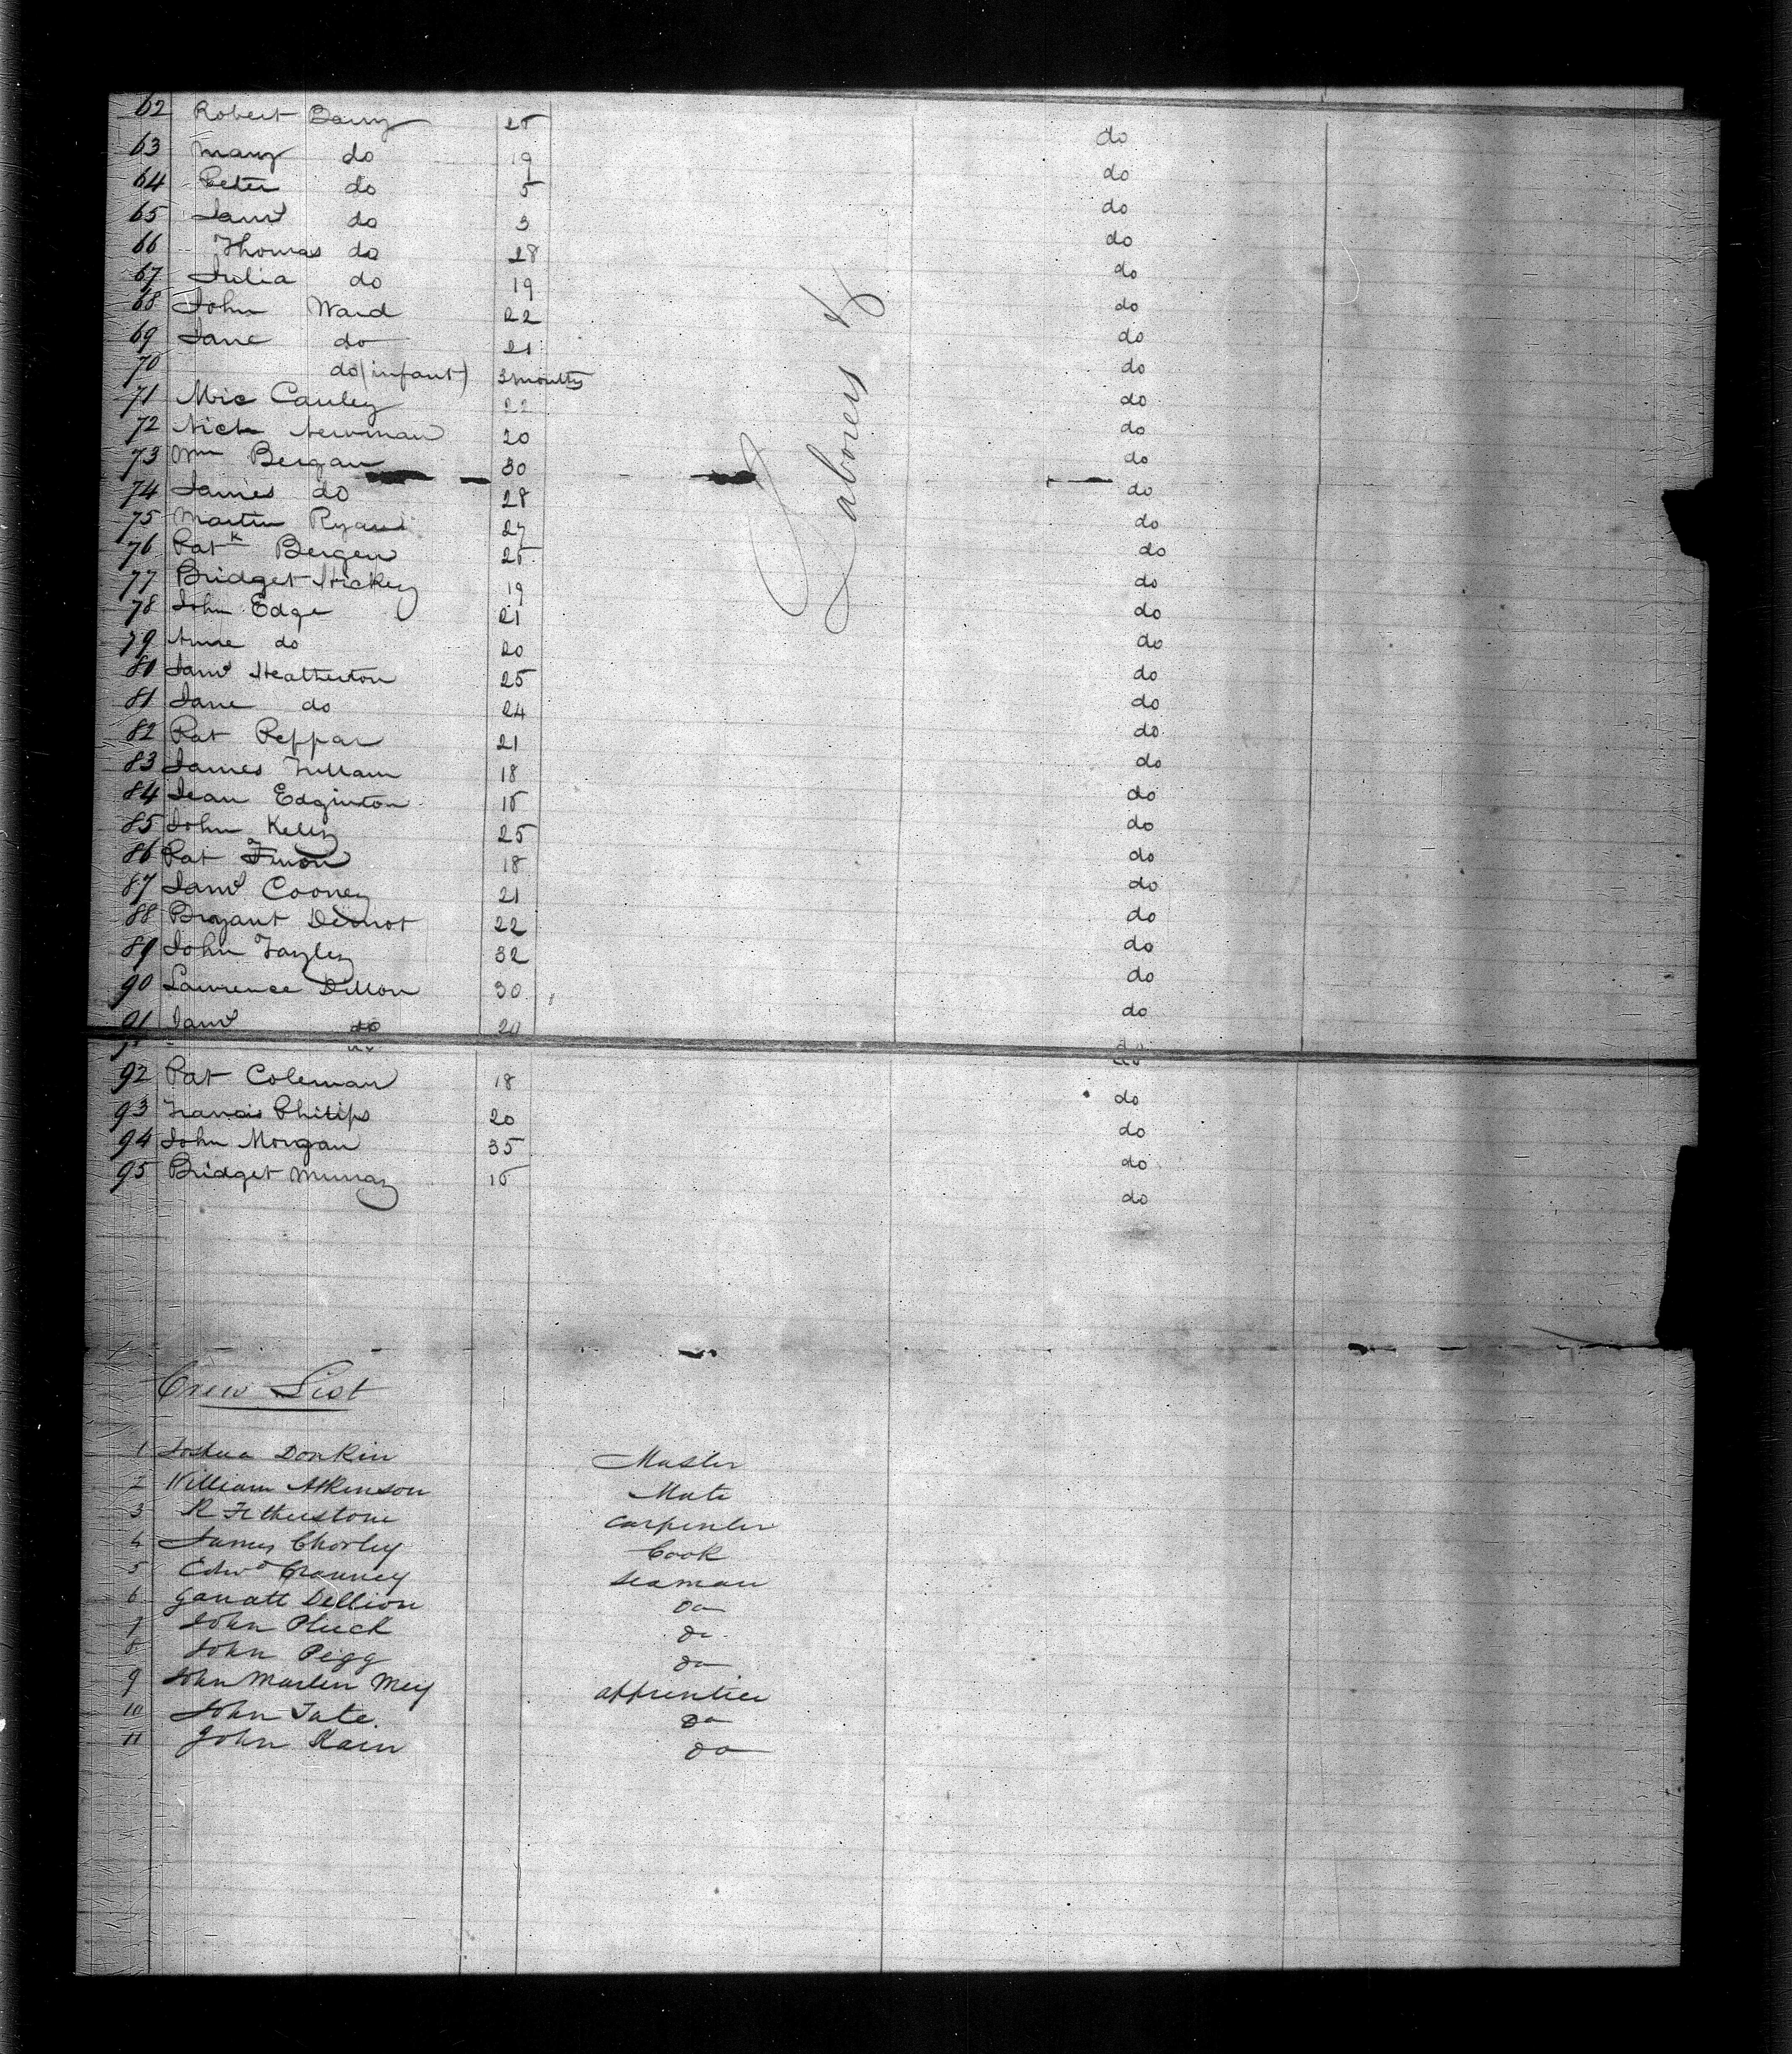 62 Robert Barry 25 do
63 Mary do 19 do
64 Peter do 5 do
65 Jams do 3 do
66 Thomas do 28 do
67 Julia do 19 do
68 John Ward 22 do
69 Jane do 21 do
70 do (infant) 3 months do
71 Mic Cauley 22 do
72 Nich Newman 20 do
73 Wm Bergan 30 do
74 James do 28 do
75 Martin Ryan 27 do
76 Patk Bergen 25 do
77 Bridget Hickey 19 do
78 John Edge 21 do
79 Anne do 20 do
80 Jams Heatherton 25 do
81 Jane do 24 do
82 Pat Peppar 21 do
83 James 18 do
84 Jean Edginton 15 do
85 John Kelly 25 do
86 Pat 18 do
87 Jams Cooney 21 do
88 Bryant Dermot 22 do
89 John 32 do
90 Lawrence Dillon 30 do
91 Jams do 20 do
Laborers &c
92 Pat Coleman 18 do
93 Francis Philips 20 do
94 John Morgan 35 do
95 Bridget Murray 15 do
Crew List
1 Joshua Donkin Master
2 William Atkinson Mate
3 R Fetherstone Carpenter
4 James Chorley Cook
5 Edwd Seaman
6 Garratt Dellion Do
7 John Do
8 John Pigg Do
9 John Martin apprentice
10 John Tate. Do
11 John Do